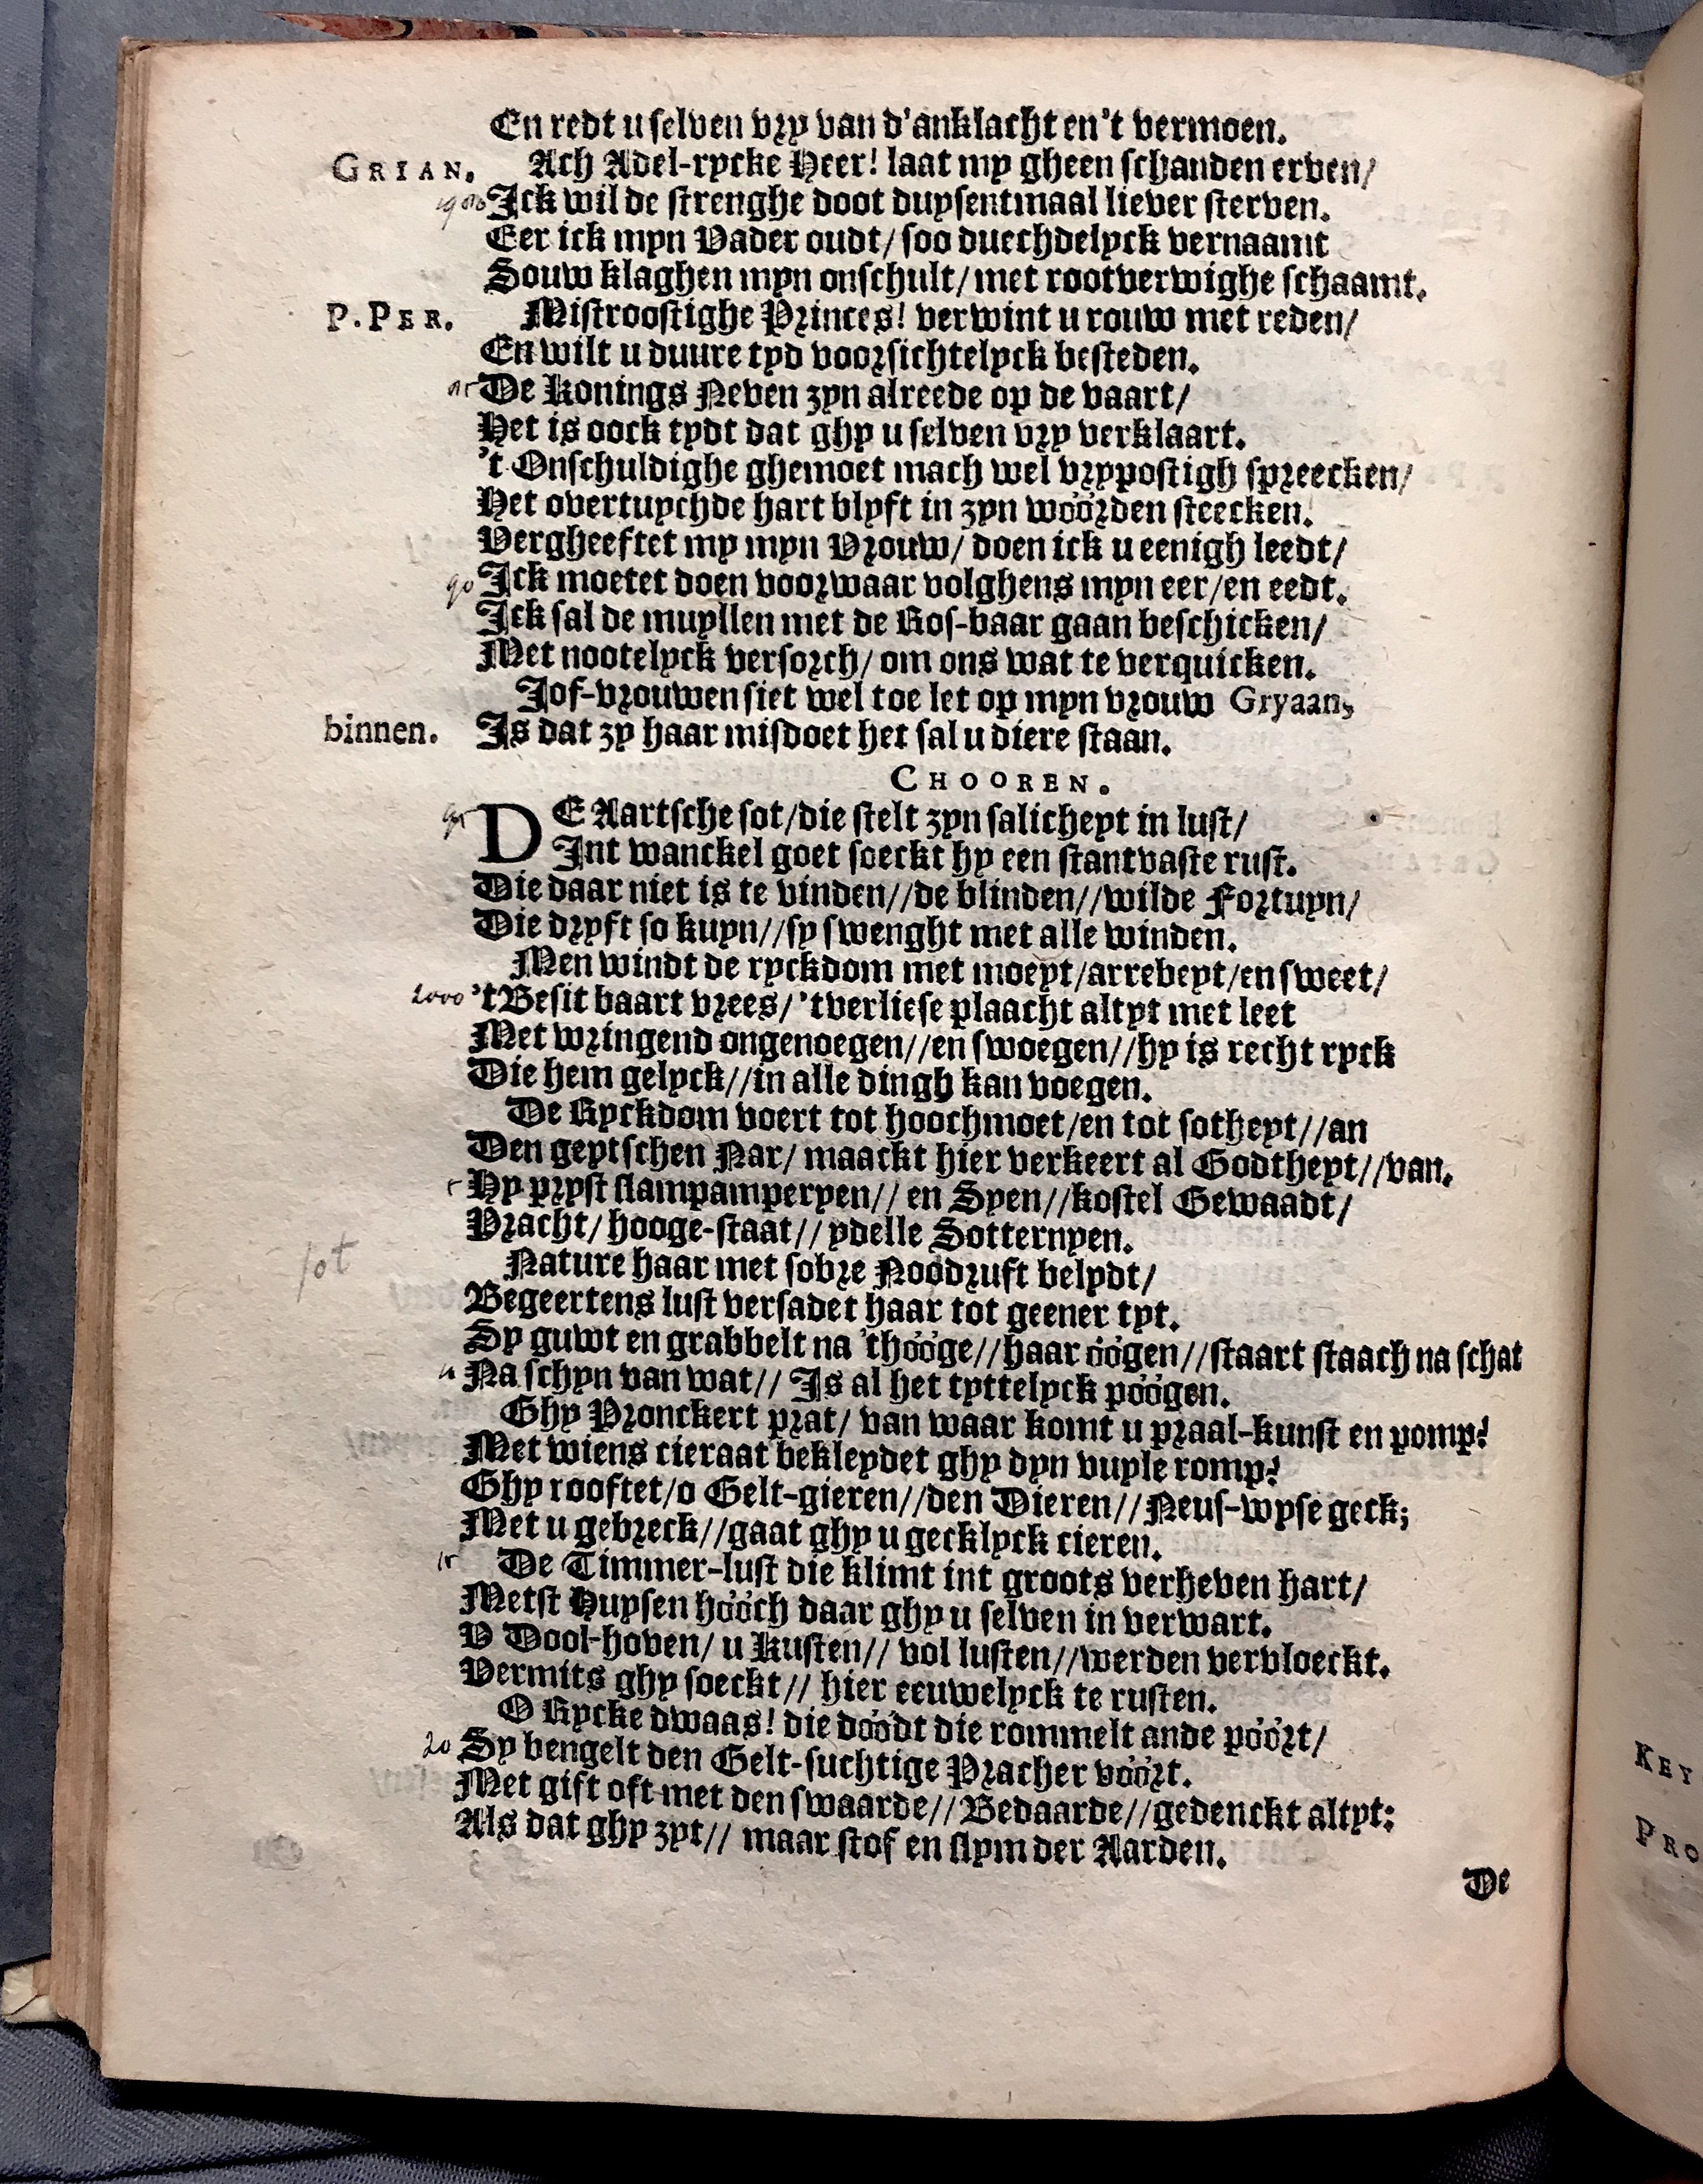 En redt u selven vry van d'anklacht en 't vermoen.
GRIAN. Ach Adel-rycke Heer! laat my gheen schanden erven/
Ick wil de strenghe doot duysentmaal liever sterven.
Eer ick myn Vader oudt/ soo duechdelyck vernaamt
Souw klaghen myn onschult/ met rootverwighe schaamt.
P.PER. Mistroostighe Princes! verwint u rouw met reden/
En wilt u duure tyd voorsichtelyck besteden.
De Konings Neven zyn alreede op de vaart/
Het is oock tydt dat ghy u selven vry verklaart.
't Onschuldighe ghemoet mach wel vrypostigh spreecken/
Het overtuychde hart blyft in zyn wöörden steecken.
Vergheeftet my myn Vrouw/ doen ick u eenigh leedt/
90 Ick moetet doen voorwaar volghens myn eer/en eedt.
Ick sal de muyllen met de Ros-baar gaan beschicken/
Met nootelyck versorch/ om ons wat te verquicken.
Jof-vrouwen siet wel toe let op myn vrouw Gryaan,
binnen. Is dat zy haar misdoet het sal u diere staan.
CHOOREN.
DE Aartsche sot/die stelt zyn salicheyt in lust/
Int wanckel goet soeckt hy een stantvaste rust.
Die daar niet is te vinden//de blinden//wilde Fortuyn/
Die dryft so kuyn//sy swenght met alle winden.
Men windt de ryckdom met moeyt/arrebeyt/en sweet/
2000 't Besit baart vrees/ 'tverliese plaacht altyt met leet
Met wringend ongenoegen//en swoegen//hy is recht ryck
Die hem gelyck//in alle dingh kan voegen.
De Ryckdom voert tot hoochmoet/en tot sotheyt//an
Den geytschen Nar/ maackt hier verkeert al Godtheyt//van.
Hy pryst slampamperyen// en Syen//kostel Gewaadt/
Pracht/ hooge-staat// ydelle Sotternyen.
sot
Nature haar met sobre Noodruft belydt/
Begeertens lust versadet haar tot geener tyt.
Sy guwt en grabbelt na 'thööge//haar öögen//staart staach na schat
Na schyn van wat// Is al het tyttelyck pöögen.
Ghy Pronckert prat/ van waar komt u praal-kunst en pomp?
Met wiens cieraat bekleydet ghy dyn vuyle romp?
Ghy rooftet/o Gelt-gieren//den Dieren//Neus-wyse geck;
Met u gebreck//gaat ghy u gecklyck cieren.
De Timmer-lust die klimt int groots verheven hart/
Metst Huysen hööch daar ghy u selven in verwart.
V Dool-hoven/ u Kusten// vol lusten//werden vervloeckt.
Vermits ghy soeckt// hier eeuwelyck te rusten.
O Rycke dwaas! die döödt die rommelt ande pöört/
20 Sy bengelt den Gelt-suchtige Pracher vöört.
Met gift oft met den swaarde//Bedaarde//gedenckt altyt:
Als dat ghy zyt// maar stof en slym der Aarden.
De
KEY
PRO